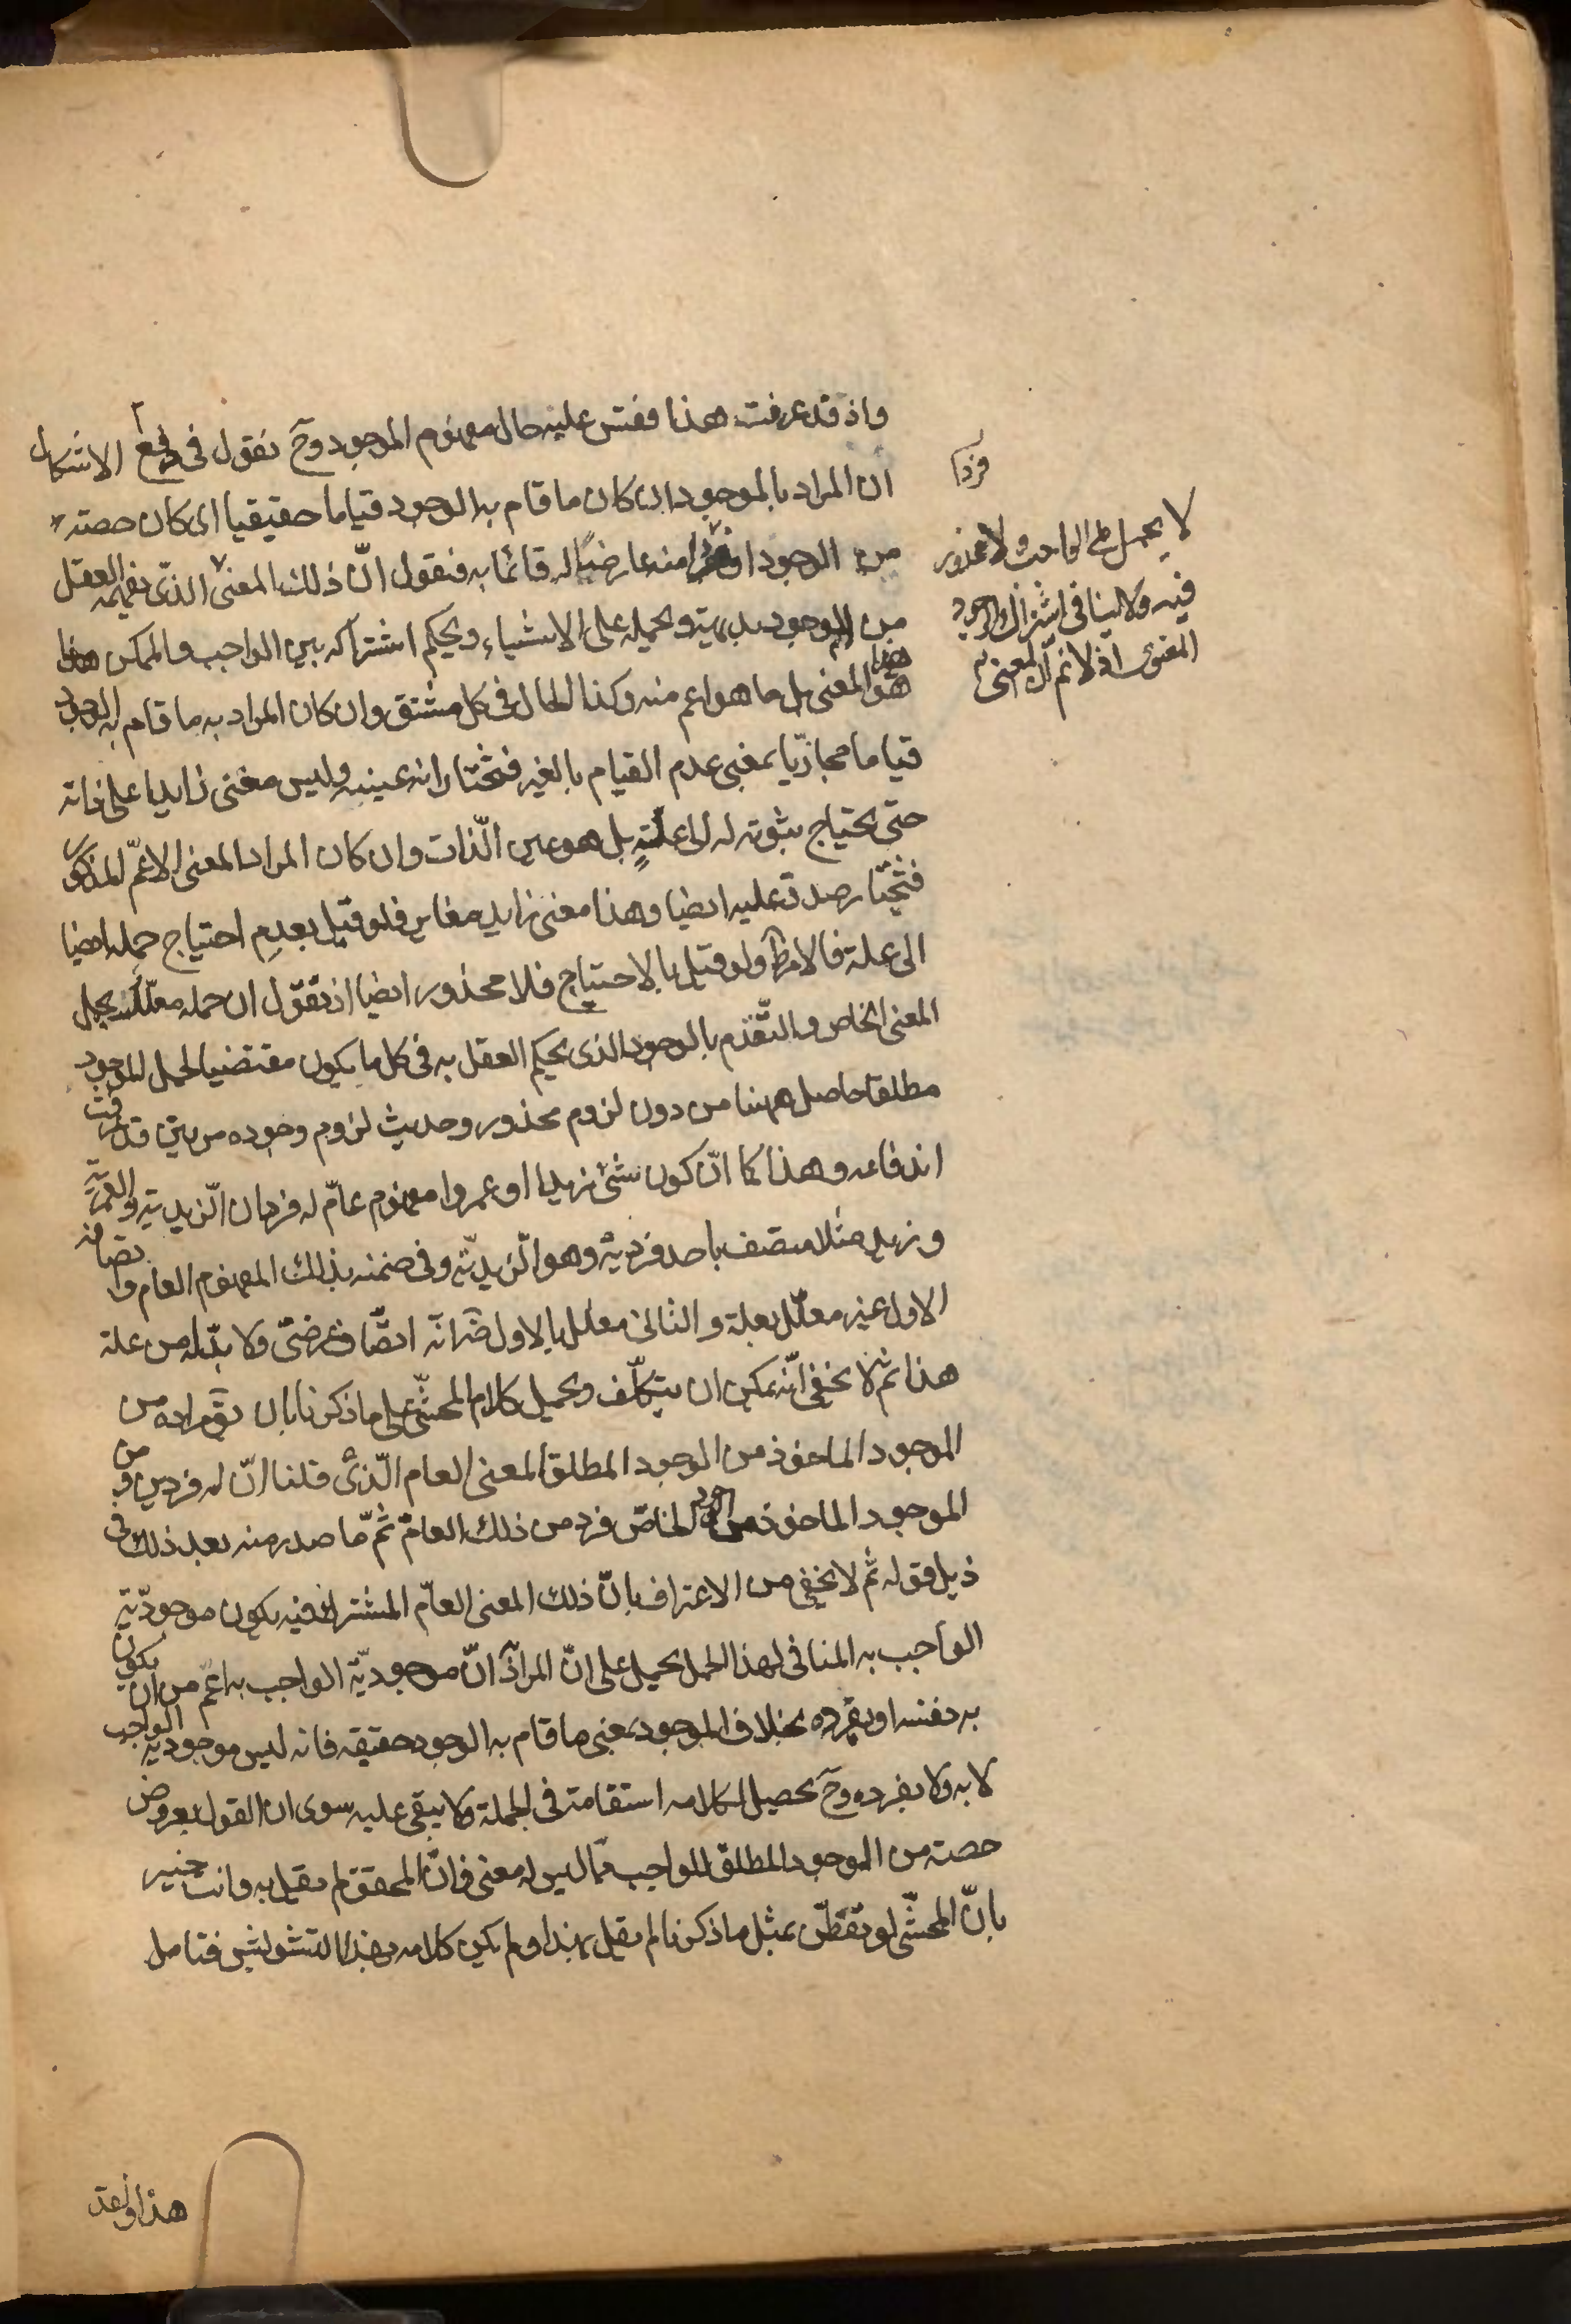 واذ قد عرفت هذا فقس عليه حال مفهوم الموجود وح نقول فى دفع الاشكال
ان المراد بالموجود ان كان ما قام به الوجود قياما حقيقيا اى كان حصته
من الوجود او فردا منه عارضا له قائما به فنقول انّ ذلك المعنى الذى يفهمه العقل
فردا
لا يحمل على الواجب ولا محذور
فيه ولا ينافى اشتراك الوجود
المعنوى اذ لانم ان المعنى
من الموجود بديهة ويحمله على الاشياء ويحكم اشتراكه بين الواجب والممكن
هو هذا المعنى بل ما هو اعم منه وكذا الحال فى كل مشتق وان كان المراد به ما قام به الوجود
قياما مجازيّا بمعنى عدم القيام بالغير فنختار انه عينه وليس معنى زايدا على ذاته
حتى يحتاج ثبوته له الى علة بل هو عين الذّات وان كان المراد المعنى الاعمّ المذكور
فنختار صدقه عليه ايضا وهذا معنى زايد مغاير فلو قيل بعدم احتياج حمله ايضا
الى علة فالامر ظ ولو قيل بالاحتياج فلا محذور ايضا اذ نقول ان حمله معلل بحمل
المعنى الخاص والتقدّم بالوجود الذى يحكم العقل به فى كل ما يكون مقتضيا لحمل الموجود
مطلقا حاصل ههنا من دون لزوم محذور وحديث لزوم وجوده مرتين قد عرفت
اندفاعه وهذا كما انّ كون شئ زيدا او عمروا مفهوم عامّ له فردان الزيدية والعمرية
وزيد مثلا متصف باحد فرديه وهو الزيديّة وفى ضمنه بذلك المفهوم العام واتصافه
الاول غير معلّل بعلة والثانى معلل بالاول ضرورة انه اتصاف عرضى ولا بدّ له من علة
هذا ثم لا يخفى انّه يمكن ان يتكلّف ويحمل كلام المحشّى على ما ذكرنا بان يق مراده من
الموجود الماخوذ من الوجود المطلق المعنى العام الّذى قلنا انّ له فردين ومن
الموجود الماخوذ من الوجود الخاصّ فرد من ذلك العامّ ثمّ ما صدر منه بعد ذلك فى
ذيل قوله ثم لا يخفى من الاعتراف بانّ ذلك المعنى العامّ المشترك فيه يكون موجوديّة
الواجب به المنافى لهذا الحمل يحمل على انّ المراد انّ موجوديّة الواجب به اعمّ من ان يكون
به نفسه او بفرده بخلاف الموجود بمعنى ما قام به الوجود حقيقة فانه ليس موجودية الواجب
لا به ولا بفرده وح يحصل لكلامه استقامة فى الجملة ولا يبقى عليه سوى ان القول بعروض
حصته من الوجود المطلق للواجب ممّا ليس له معنى فانّ المحقق لم يقل به وانت خبير
بانّ المحشّى لو تفطّن بمثل ما ذكرنا لم يقل بهذا ولم يكن كلامه بهذا التشويش فتامل
هذا ولقد